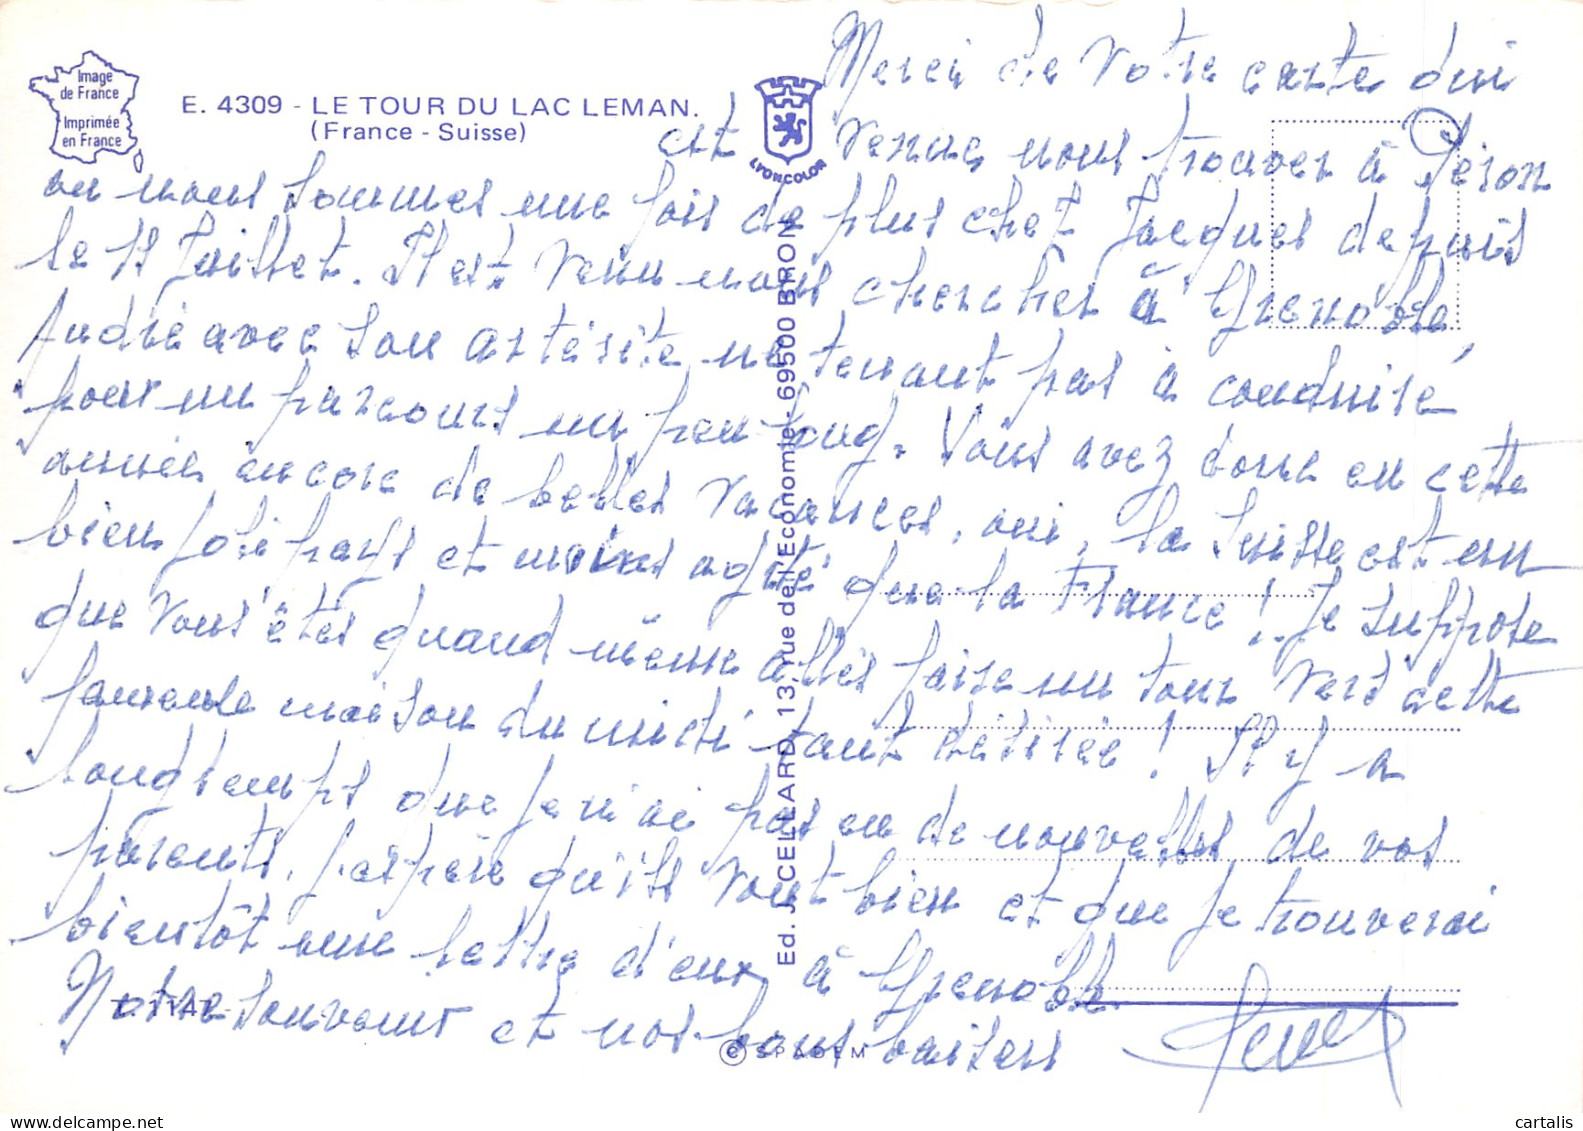 Image
de France
Imprimée
en France
E. 4309 - LE TOUR DU LAC LEMAN.
(France - Suisse)
LYONCOLOR
Merci de votre carte qui
est venue nous trouver à Péron
ou nous sommes une fois de plus chez Jacques depuis
le 11 Juillet. Il est venu nous chercher à Grenoble,
André avec son artérite ne tenant pas à conduire
pour un parcours un peu long. Vous avez donc eu cette
année encore de belles vacances, oui, la Suisse est un
bien joli pays et moins agité que la France ! Je suppose
que vous êtes quand même allés faire un tour vers cette
fameuse maison du midi tant désirée ! Il y a
longtemps que je n'ai pas eu de nouvelles de vos
parents, j'espère qu'ils vont bien et que je trouverai
bientôt une lettre d'eux à Grenoble.
Notre souvenir et nos bons baisers
Ed. J. CELLARD, 13, rue de l'Economie - 69500 BRON
© SPADEM
cartalis